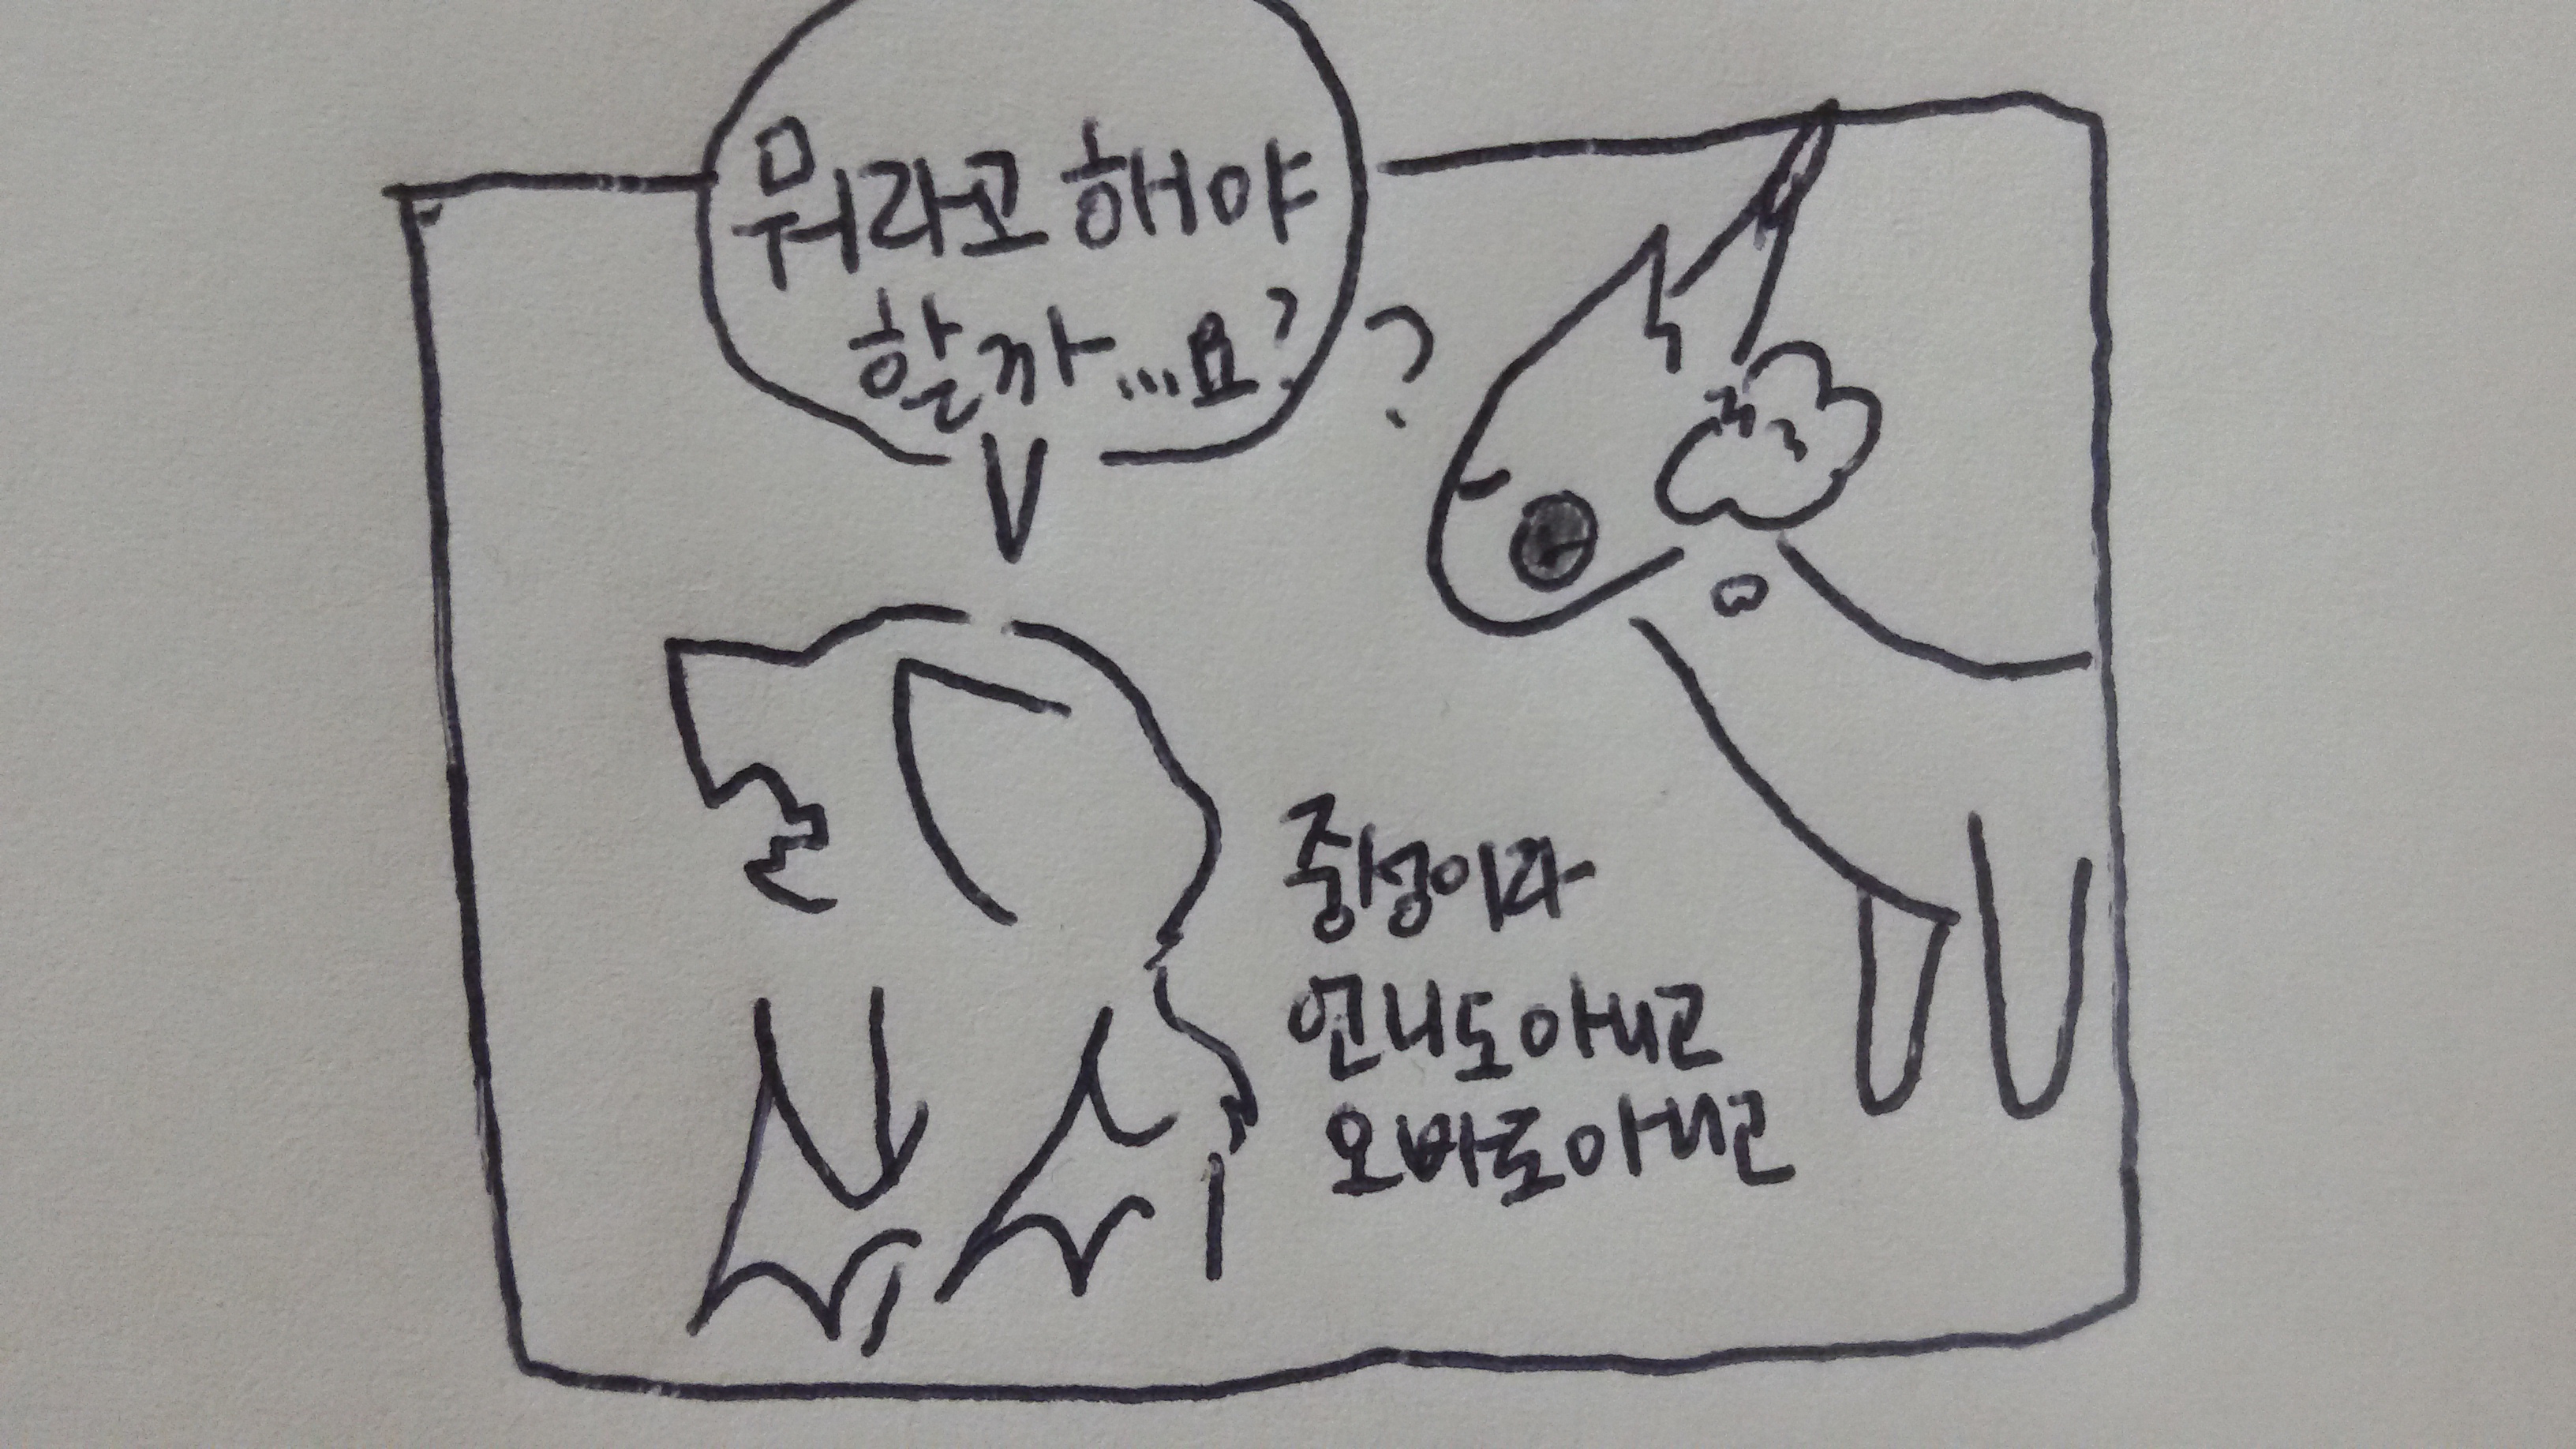 뭐라고 해야
할까...요?
?
중성이라
언니도아니고
오빠도아니고